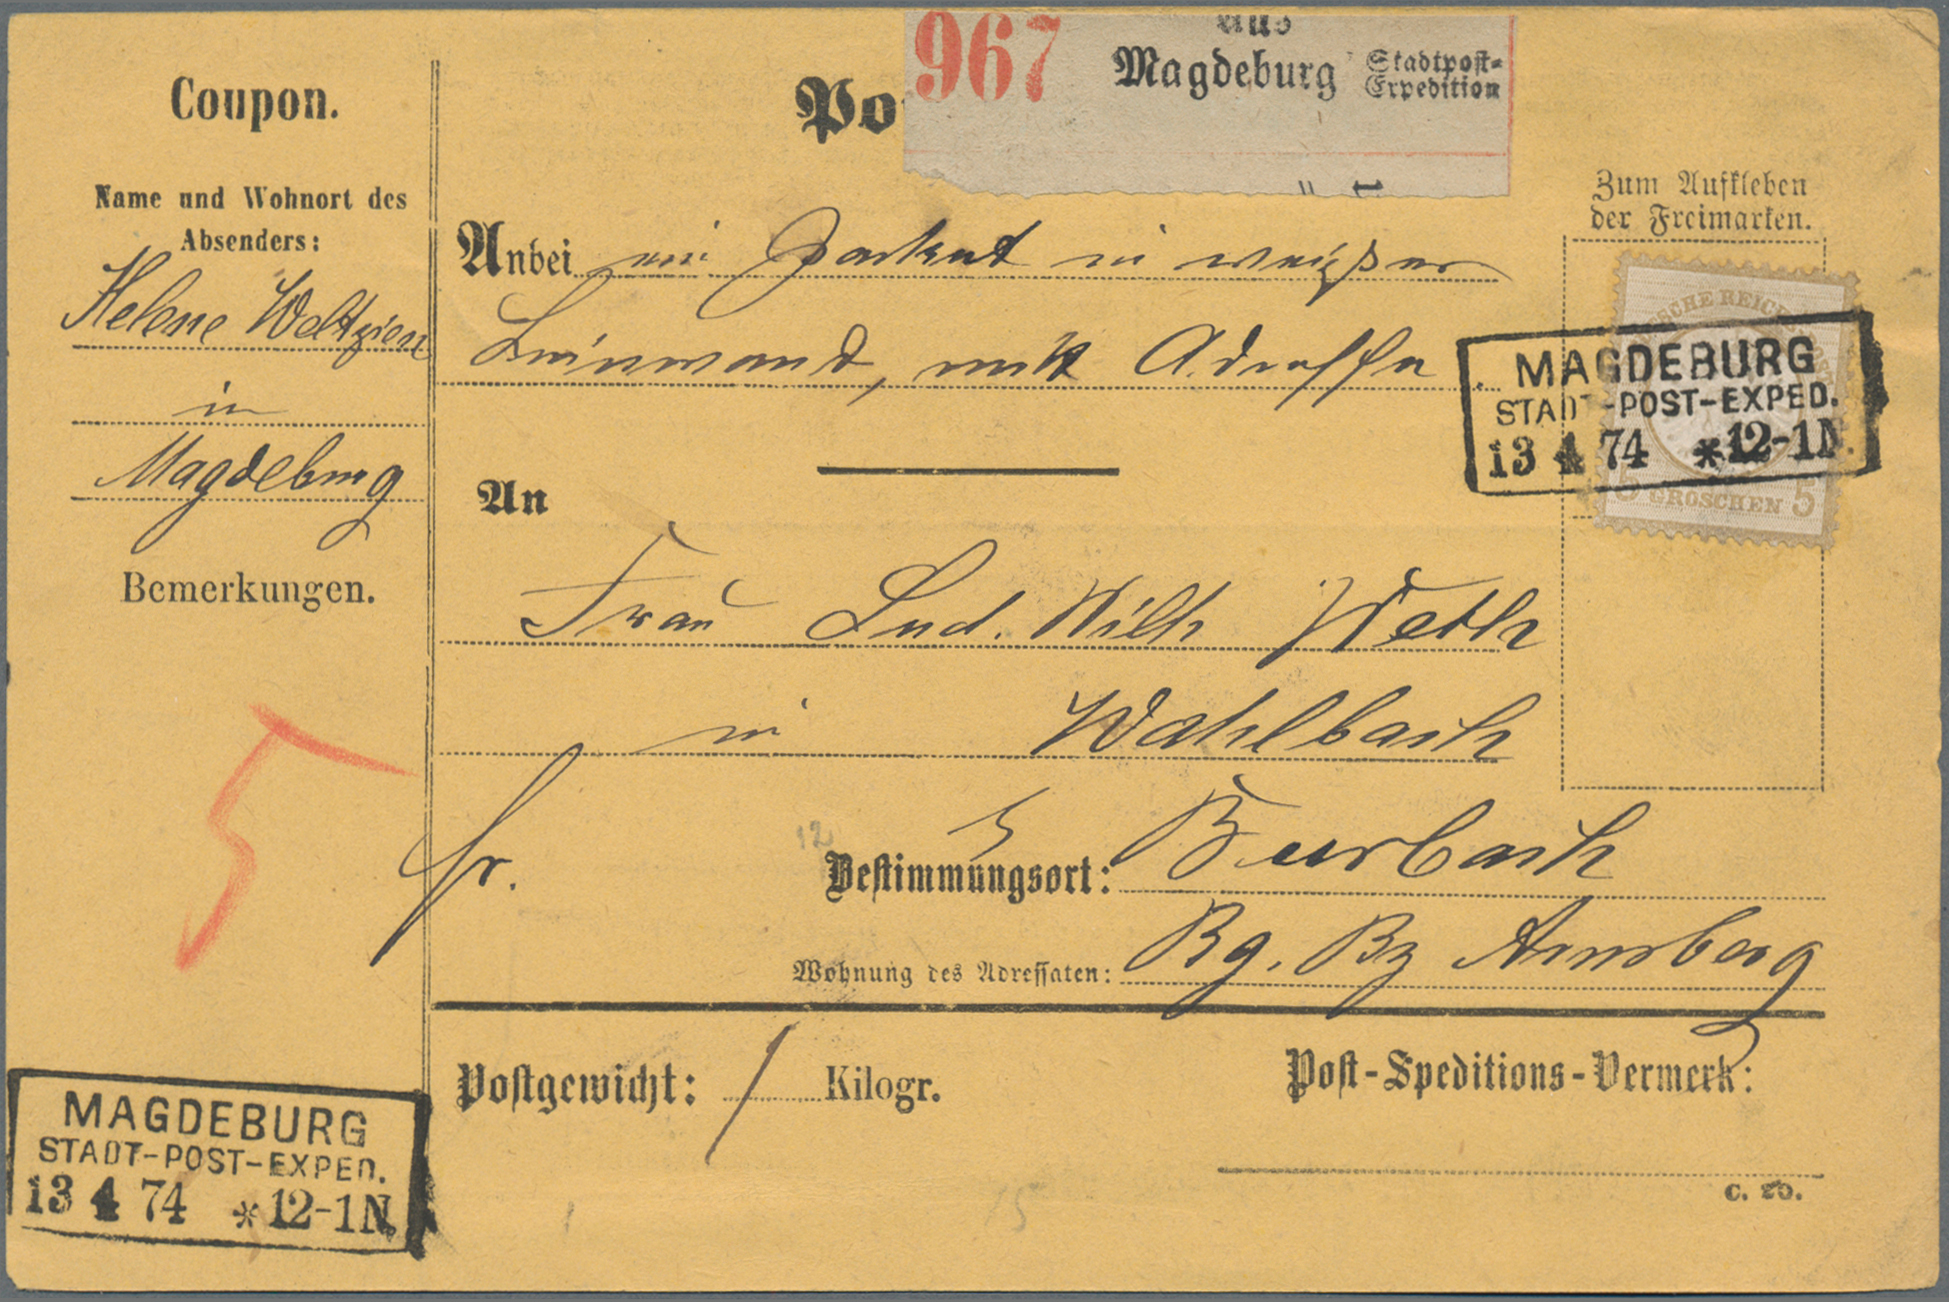 Coupon.
Name und Wohnort des
Absenders:
Helene Weltzien
in
Magdeburg
Bemerkungen.
5
MAGDEBURG
STADT-POST-EXPED.
13 4 74 *12-1N.
Po
967
aus
Magdeburg
Stadtpost-
Expedition
Anbei ein Packet in weißer
Leinwand, mit Adresse
An
Frau Lud. Wilh
in Wahlbach
fr.
12
Bestimmungsort: Burbach
Wohnung des Adressaten: Rg. Bz Arnsberg
Postgewicht: 1 Kilogr.
Zum Aufkleben
der Freimarken.
DEUTSCHE REICHS-POST
5 GROSCHEN 5
MAGDEBURG
STADT-POST-EXPED.
13 4 74 *12-1N.
Post-Speditions-Vermerk:
15